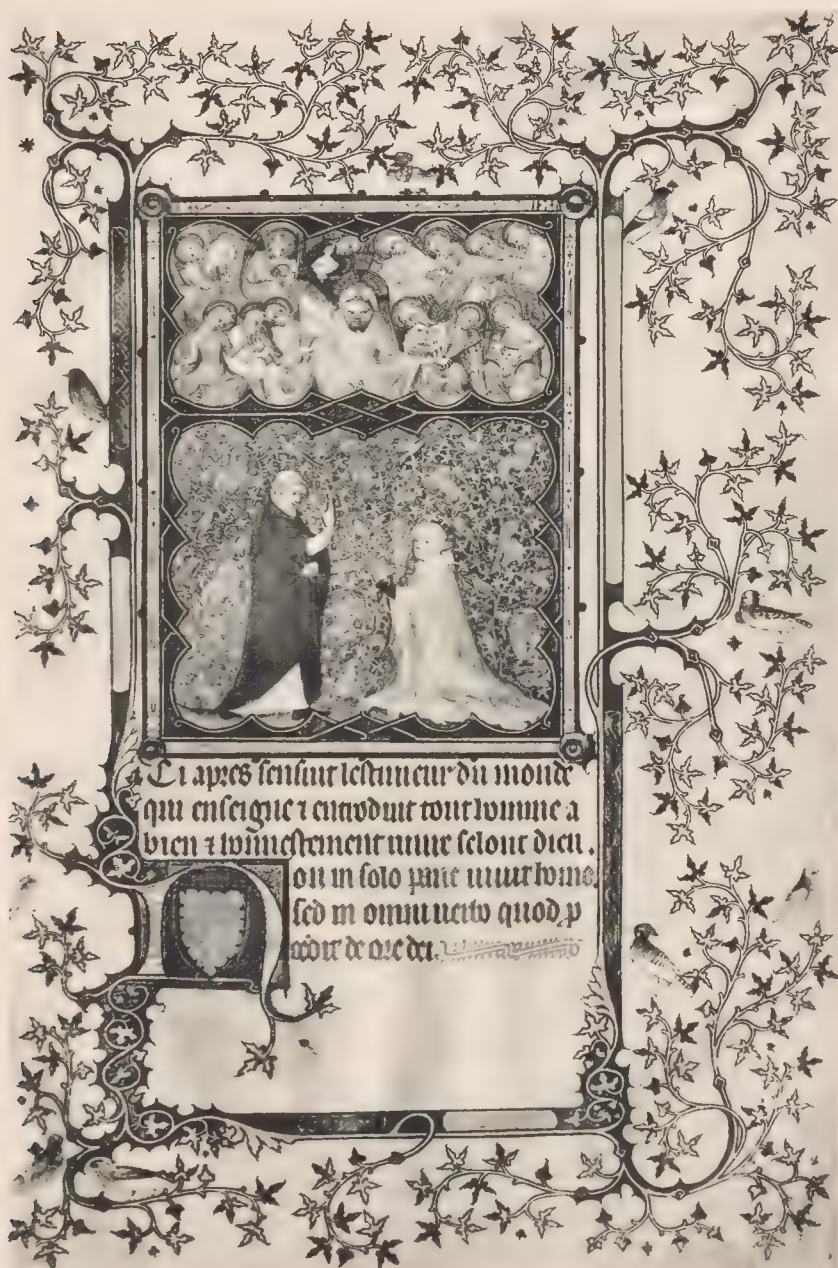 Ci apres sensuit lestimeur du monde
qui enseigne ⁊ entroduit tout homme a
bien ⁊ honnestement uiure selonc dieu.
Non in solo pane uiuit homo
sed in omni uerbo quod p
cedit de ore dei.